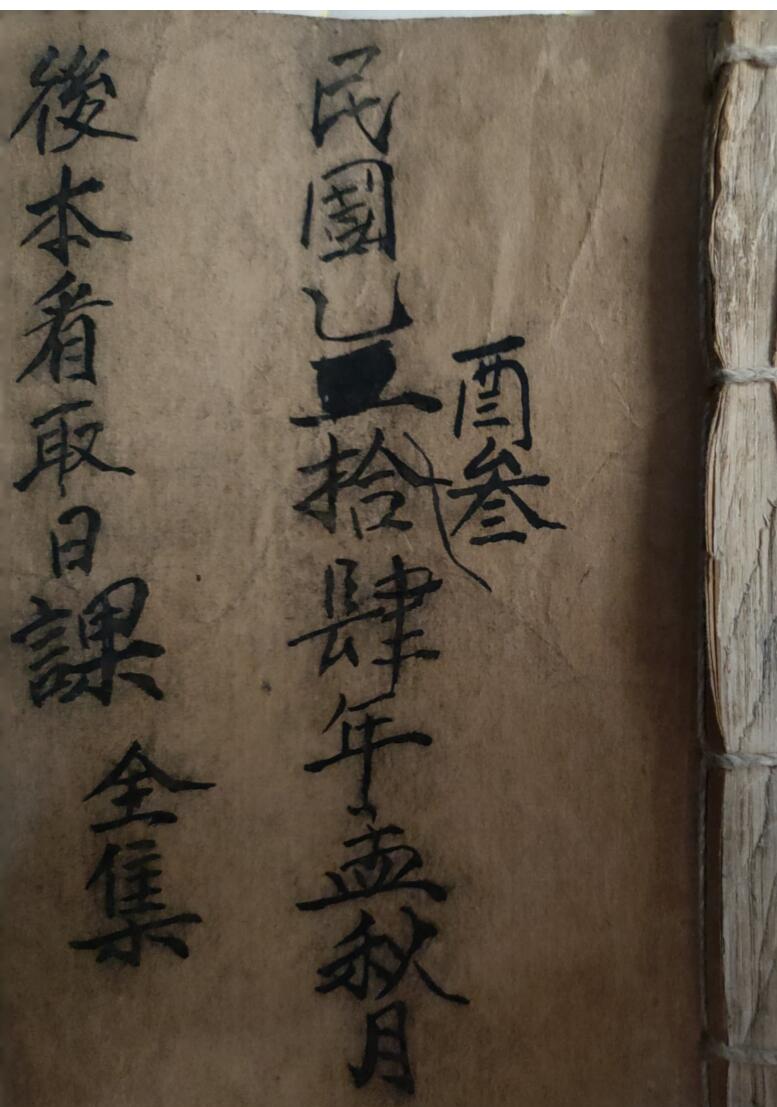 民國乙拾肆年孟秋月
酉叁
後本看取日課全集